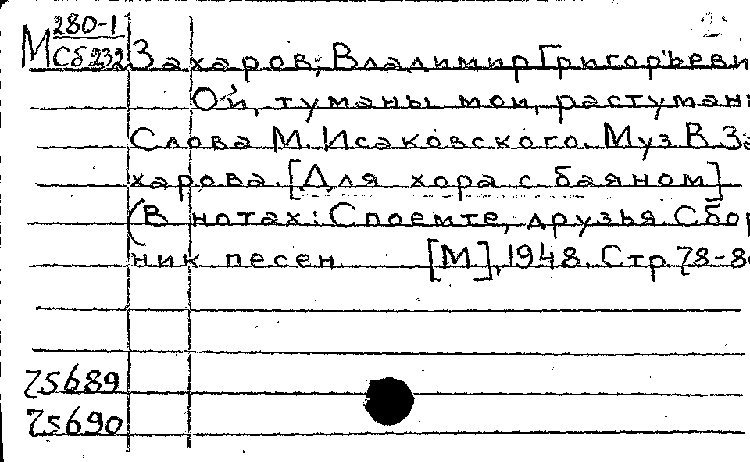 М 280-1
Сб232 Захаров, Владимир Григорьеви
Ой, туманы мои, растуман
Слова М. Исаковского. Муз В. За
харова. [Для хора с баяном]
(В нотах: Споемте, друзья. Сбор
ник песен [М], 1948. Стр. 78-8
75689
75690